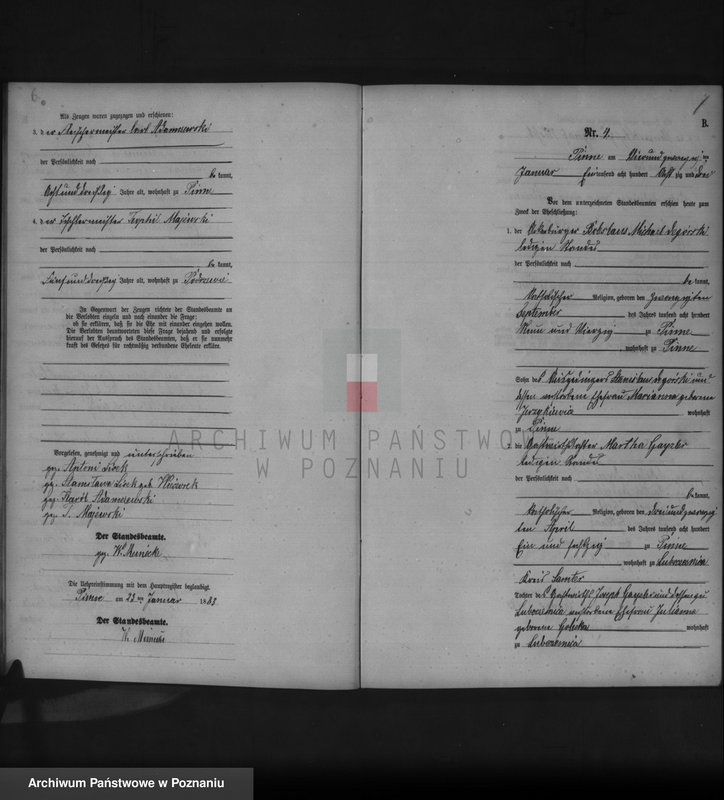 6.
Als Zeugen waren zugezogen und erschienen:
3. der Fleischermeister Carl Adamzewski
der Persönlichkeit nach
be kannt,
Acht und dreißig Jahre alt, wohnhaft zu Pinne
4. der Tischlermeister Teophil Majewski
der Persönlichkeit nach
be kannt,
Fünf und dreißig Jahre alt, wohnhaft zu
In Gegenwart der Zeugen richtete der Standesbeamte an
die Verlobten einzeln und nach einander die Frage:
ob sie erklären, daß sie die Ehe mit einander eingehen wollen.
Die Verlobten beantworteten diese Frage bejahend und erfolgte
hierauf der Ausspruch des Standesbeamten, daß er sie nunmehr
kraft des Gesetzes für rechtmäßig verbundene Eheleute erkläre.
Vorgelesen, genehmigt und unterschrieben
gez. Antoni
gez. Stanisława geb.
gez. Karol Adamczewski
gez. T. Majewski
Der Standesbeamte.
gez. W. Meinecke
Die Uebereinstimmung mit dem Hauptregister beglaubigt.
Pinne am 23 ten Januar 1883
Der Standesbeamte.
W. Meinecke
B.
Nr. 4.
Pinne am Vierundzwanzigsten
Januar Eintausend acht hundert Acht zig und drei
Vor dem unterzeichneten Standesbeamten erschien heute zum
Zweck der Eheschließung:
1. der Ackerbürger Michael Zgórski
ledigen Standes
der Persönlichkeit nach
be kannt,
Katholischer Religion, geboren den Zwanzigsten
September des Jahres tausend acht hundert
Neun und Vierzig zu Pinne
wohnhaft zu Pinne
Sohn des Ausgedingers Stanislaus Zgórski und
dessen verstorbenen Ehefrau Marianna geborene
wohnhaft
zu Pinne
2. die Gastwirthstochter Martha Gayzler
ledigen Standes
der Persönlichkeit nach
be kannt,
Katholischer Religion, geboren den dreiundzwanzig
ten April des Jahres tausend acht hundert
Ein und sechzig zu Pinne
wohnhaft zu Lubosinia
Kreis Samter
Tochter des Gastwirths Joseph Gayzler und dessen zu
Lubosinia verstorbenen Ehefrau Julianna
geborene wohnhaft
zu Lubosinia
ARCHIWUM PAŃSTWO
W POZNANIU
Archiwum Państwowe w Poznaniu